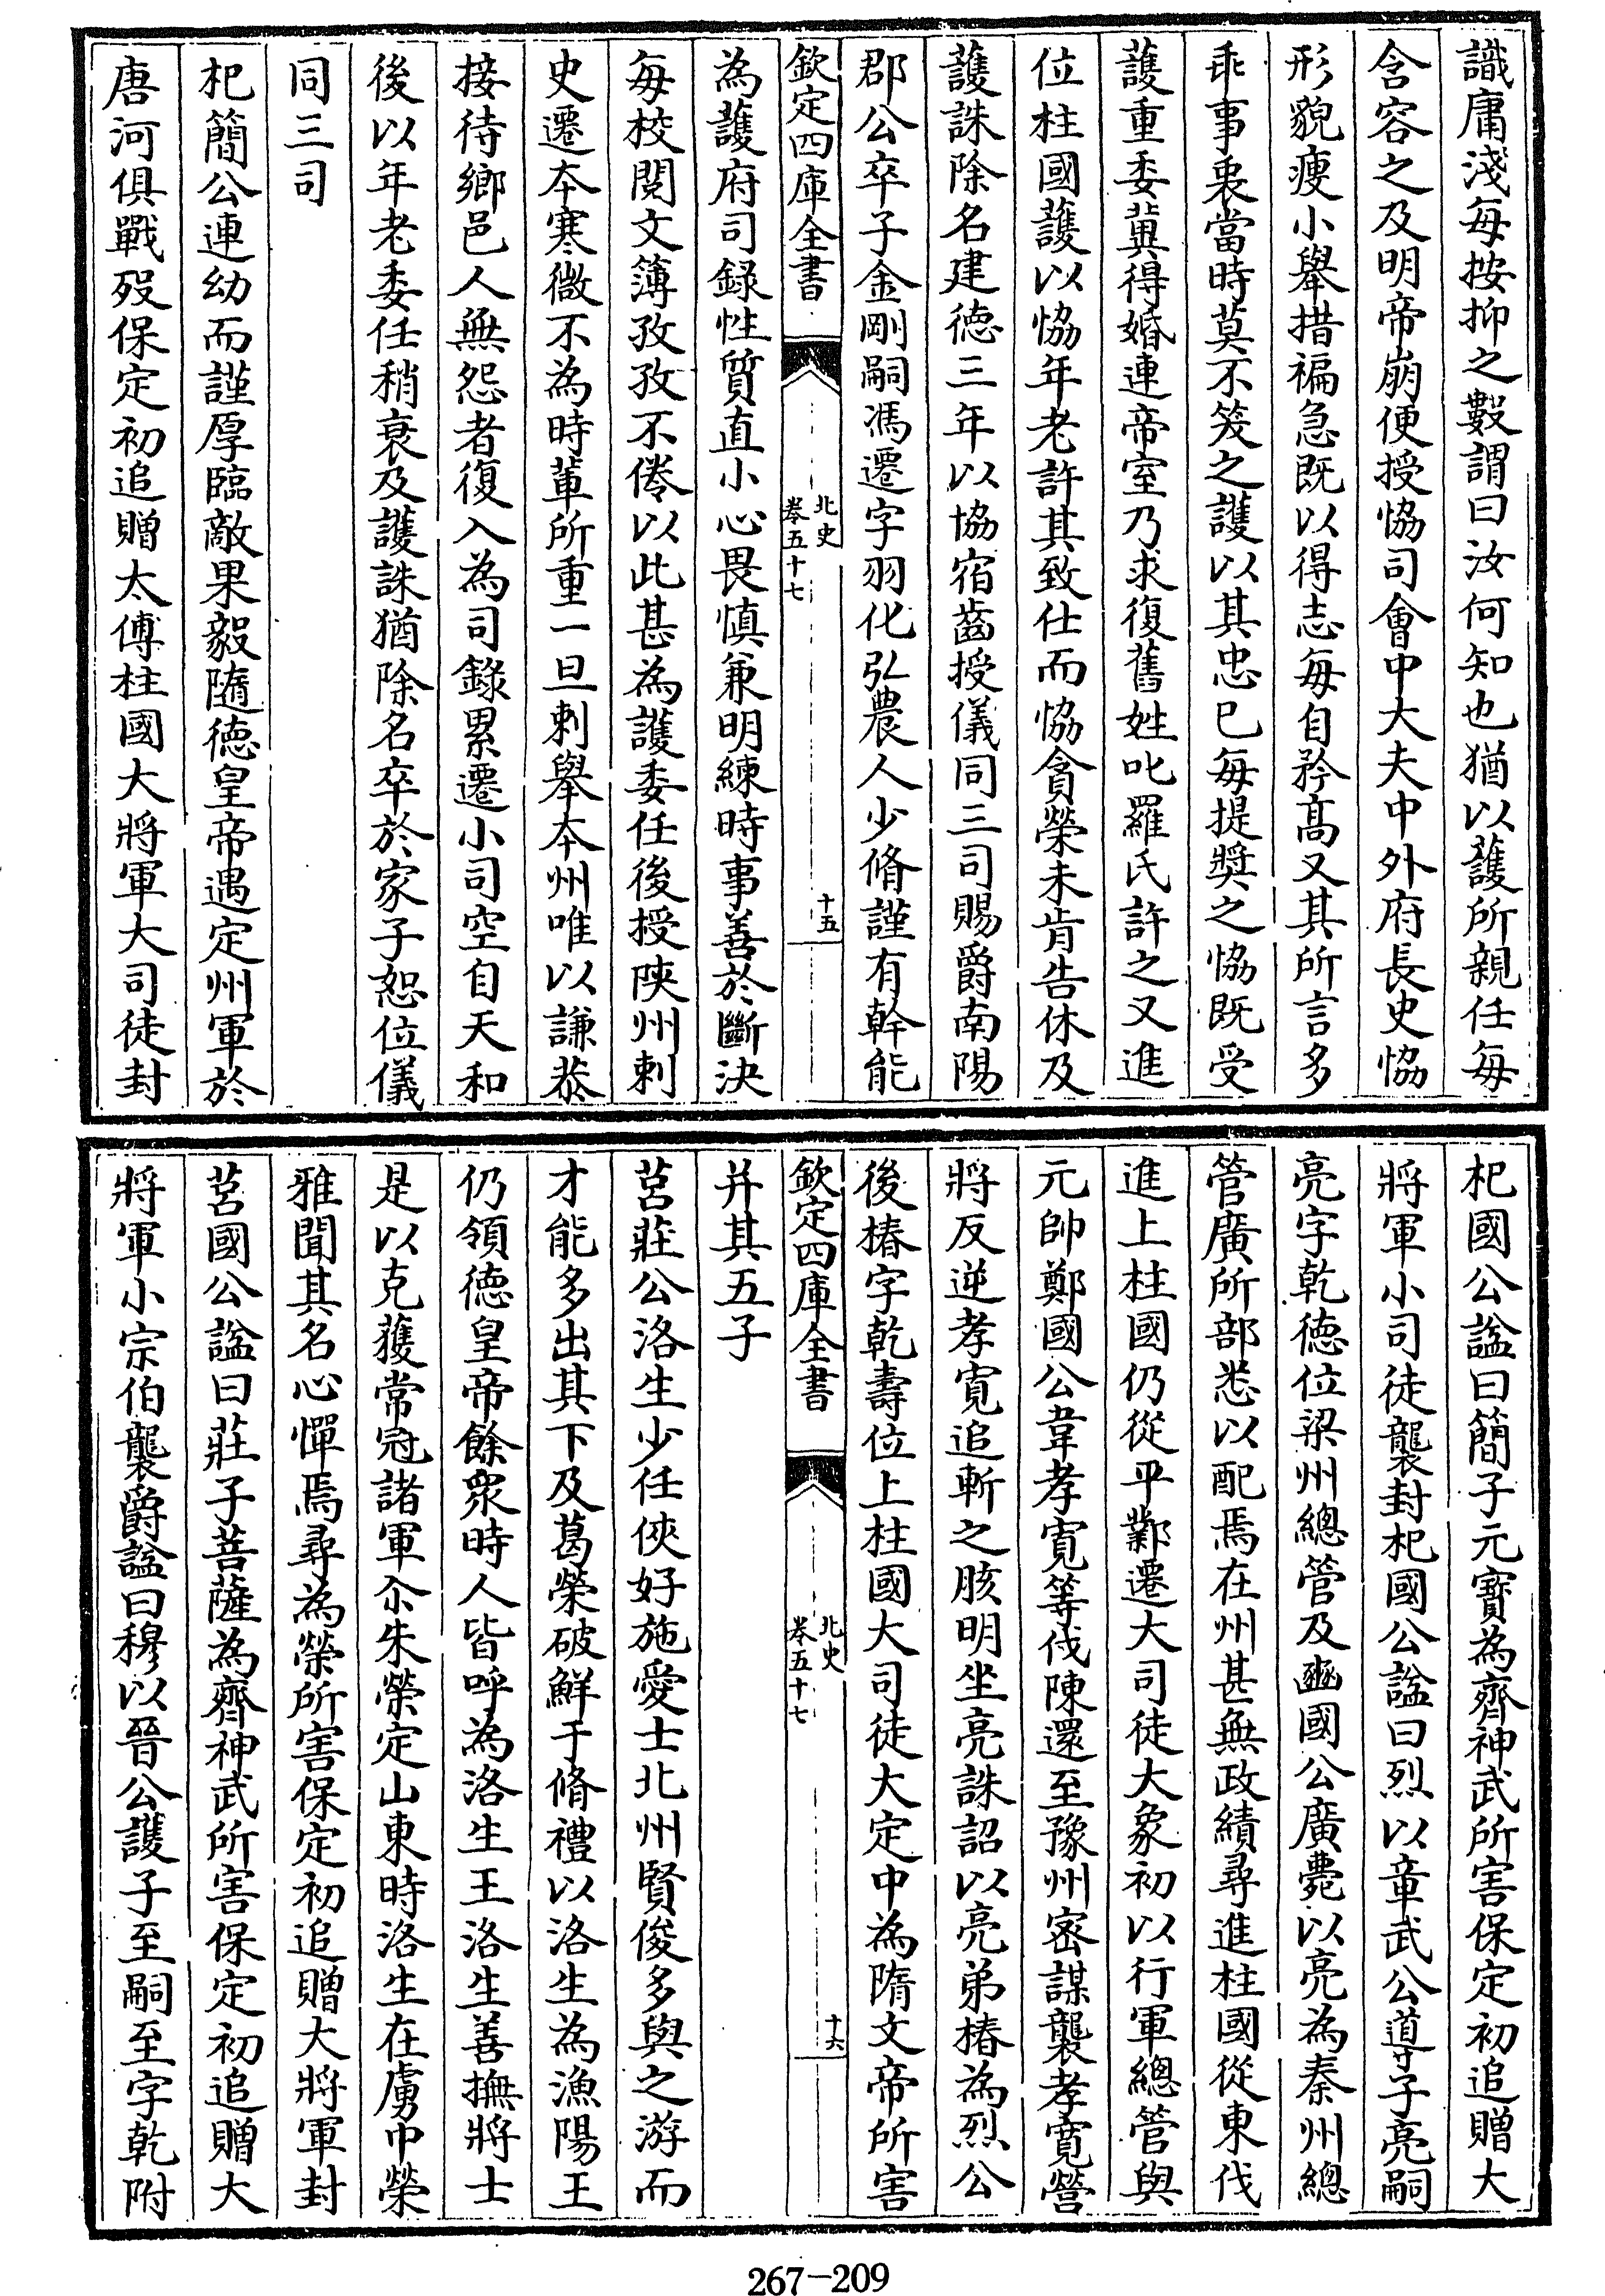 識庸淺每按抑之數謂曰汝何知也猶以護所親任每
含容之及明帝崩便授恊司會中大夫中外府長史恊
形貌瘦小舉措褊急既以得志每自矜高又其所言多
乖事衷當時莫不笑之護以其忠已每提奬之恊既受
護重委冀得婚連帝室乃求復舊姓叱羅氏許之又進
位柱國護以恊年老許其致仕而恊貪榮未肯告休及
護誅除名建徳三年以協宿齒授儀同三司賜爵南陽
郡公卒子金剛嗣馮遷字羽化弘農人少脩謹有幹能
欽定四庫全書
北史
卷五十七
十五
為護府司録性質直小心畏慎兼明練時事善於斷決
每校閲文簿孜孜不倦以此甚為護委任後授陜州刺
史遷本寒微不為時軰所重一旦刺舉本州唯以謙恭
接待鄉邑人無怨者復入為司錄累遷小司空自天和
後以年老委任稍衰及護誅猶除名卒於家子恕位儀
同三司
杞簡公連幼而謹厚臨敵果毅隨徳皇帝遇定州軍於
唐河俱戰歿保定初追贈太傅柱國大將軍大司徒封
杞國公諡曰簡子元寶為齊神武所害保定初追贈大
將軍小司徒襲封杞國公諡曰烈以章武公導子亮嗣
亮字乾徳位梁州總管及豳國公廣薨以亮為秦州總
管廣所部悉以配焉在州甚無政績尋進柱國從東伐
進上柱國仍從平鄴遷大司徒大象初以行軍總管與
元帥鄭國公韋孝寛等伐陳還至豫州宻謀襲孝寛營
將反逆孝寛追斬之胲明坐亮誅詔以亮弟椿為烈公
後椿字乾壽位上柱國大司徒大定中為隋文帝所害
欽定四庫全書
北史
卷五十七
十六
并其五子
莒莊公洛生少任俠好施愛士北州賢俊多與之游而
才能多出其下及葛榮破鮮于脩禮以洛生為漁陽王
仍領徳皇帝餘衆時人皆呼為洛生王洛生善撫將士
是以克獲常冠諸軍尒朱榮定山東時洛生在虜中榮
雅聞其名心憚焉尋為榮所害保定初追贈大將軍封
莒國公諡曰莊子菩薩為齊神武所害保定初追贈大
將軍小宗伯襲爵諡曰穆以晉公護子至嗣至字乾附
267-209